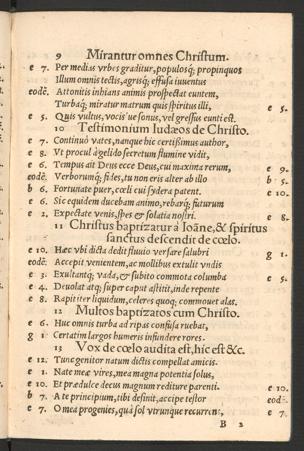 9 Mirantur omnes Christum.
e 7. Per medias vrbes graditur, populosq; propinquos
Illum omnis tectis, agrisq; effusa iuuentus
eodē. Attonitis inhians animis prospectat euntem,
Turbaq; miratur matrum quis spiritus illi, e 5.
e 5. Quis vultus, vocisue sonus, vel gressus eunti est.
10 Testimonium Iudæos de Christo.
e 7. Continuò vates, nanque hic certissimus author,
e 8. Vt procul à gelido secretum flumine vidit,
e 6. Tempus ait Deus ecce Deus, cui maxima rerum, e 9.
eodē. Verborumq; fides, tu non eris alter ab illo b 5.
b 6. Fortunate puer, cœli cui sydera patent. e 10.
e 6. Sic equidem ducebam animo, rebarq; futurum
e 2. Expectate venis, spes & solatia nostri. e 8.
11 Christus baptizatur à Ioāne, & spiritus
sanctus descendit de cœlo.
e 10. Hæc vbi dicta dedit fluuio versare salubri g 1.
eodē. Accepit venientem, ac mollibus extulit vndis
e 3. Exultantq; vada, & subito commota columba e 5.
e 4. Deuolat atq; super caput astitit, inde repente
e 8. Rapit iter liquidum, celeres quoq; commouet alas.
12 Multos baptizatos cum Christo.
e 6. Huc omnis turba ad ripas confusa ruebat,
g 1. Certatim largos humeris infundere rores.
13 Vox de cœlo audita est, hic est &c.
e 12. Tunc genitor natum dictis compellat amicis.
e 1. Nate meæ vires, mea magna potentia solus,
e 10. Et prædulce decus magnum rediture parenti. e 10.
b 7. A te principium, tibi desinit, accipe testor eodē.
e 7. O mea progenies, quà sol vtrunque recurrens, e 7.
B 2